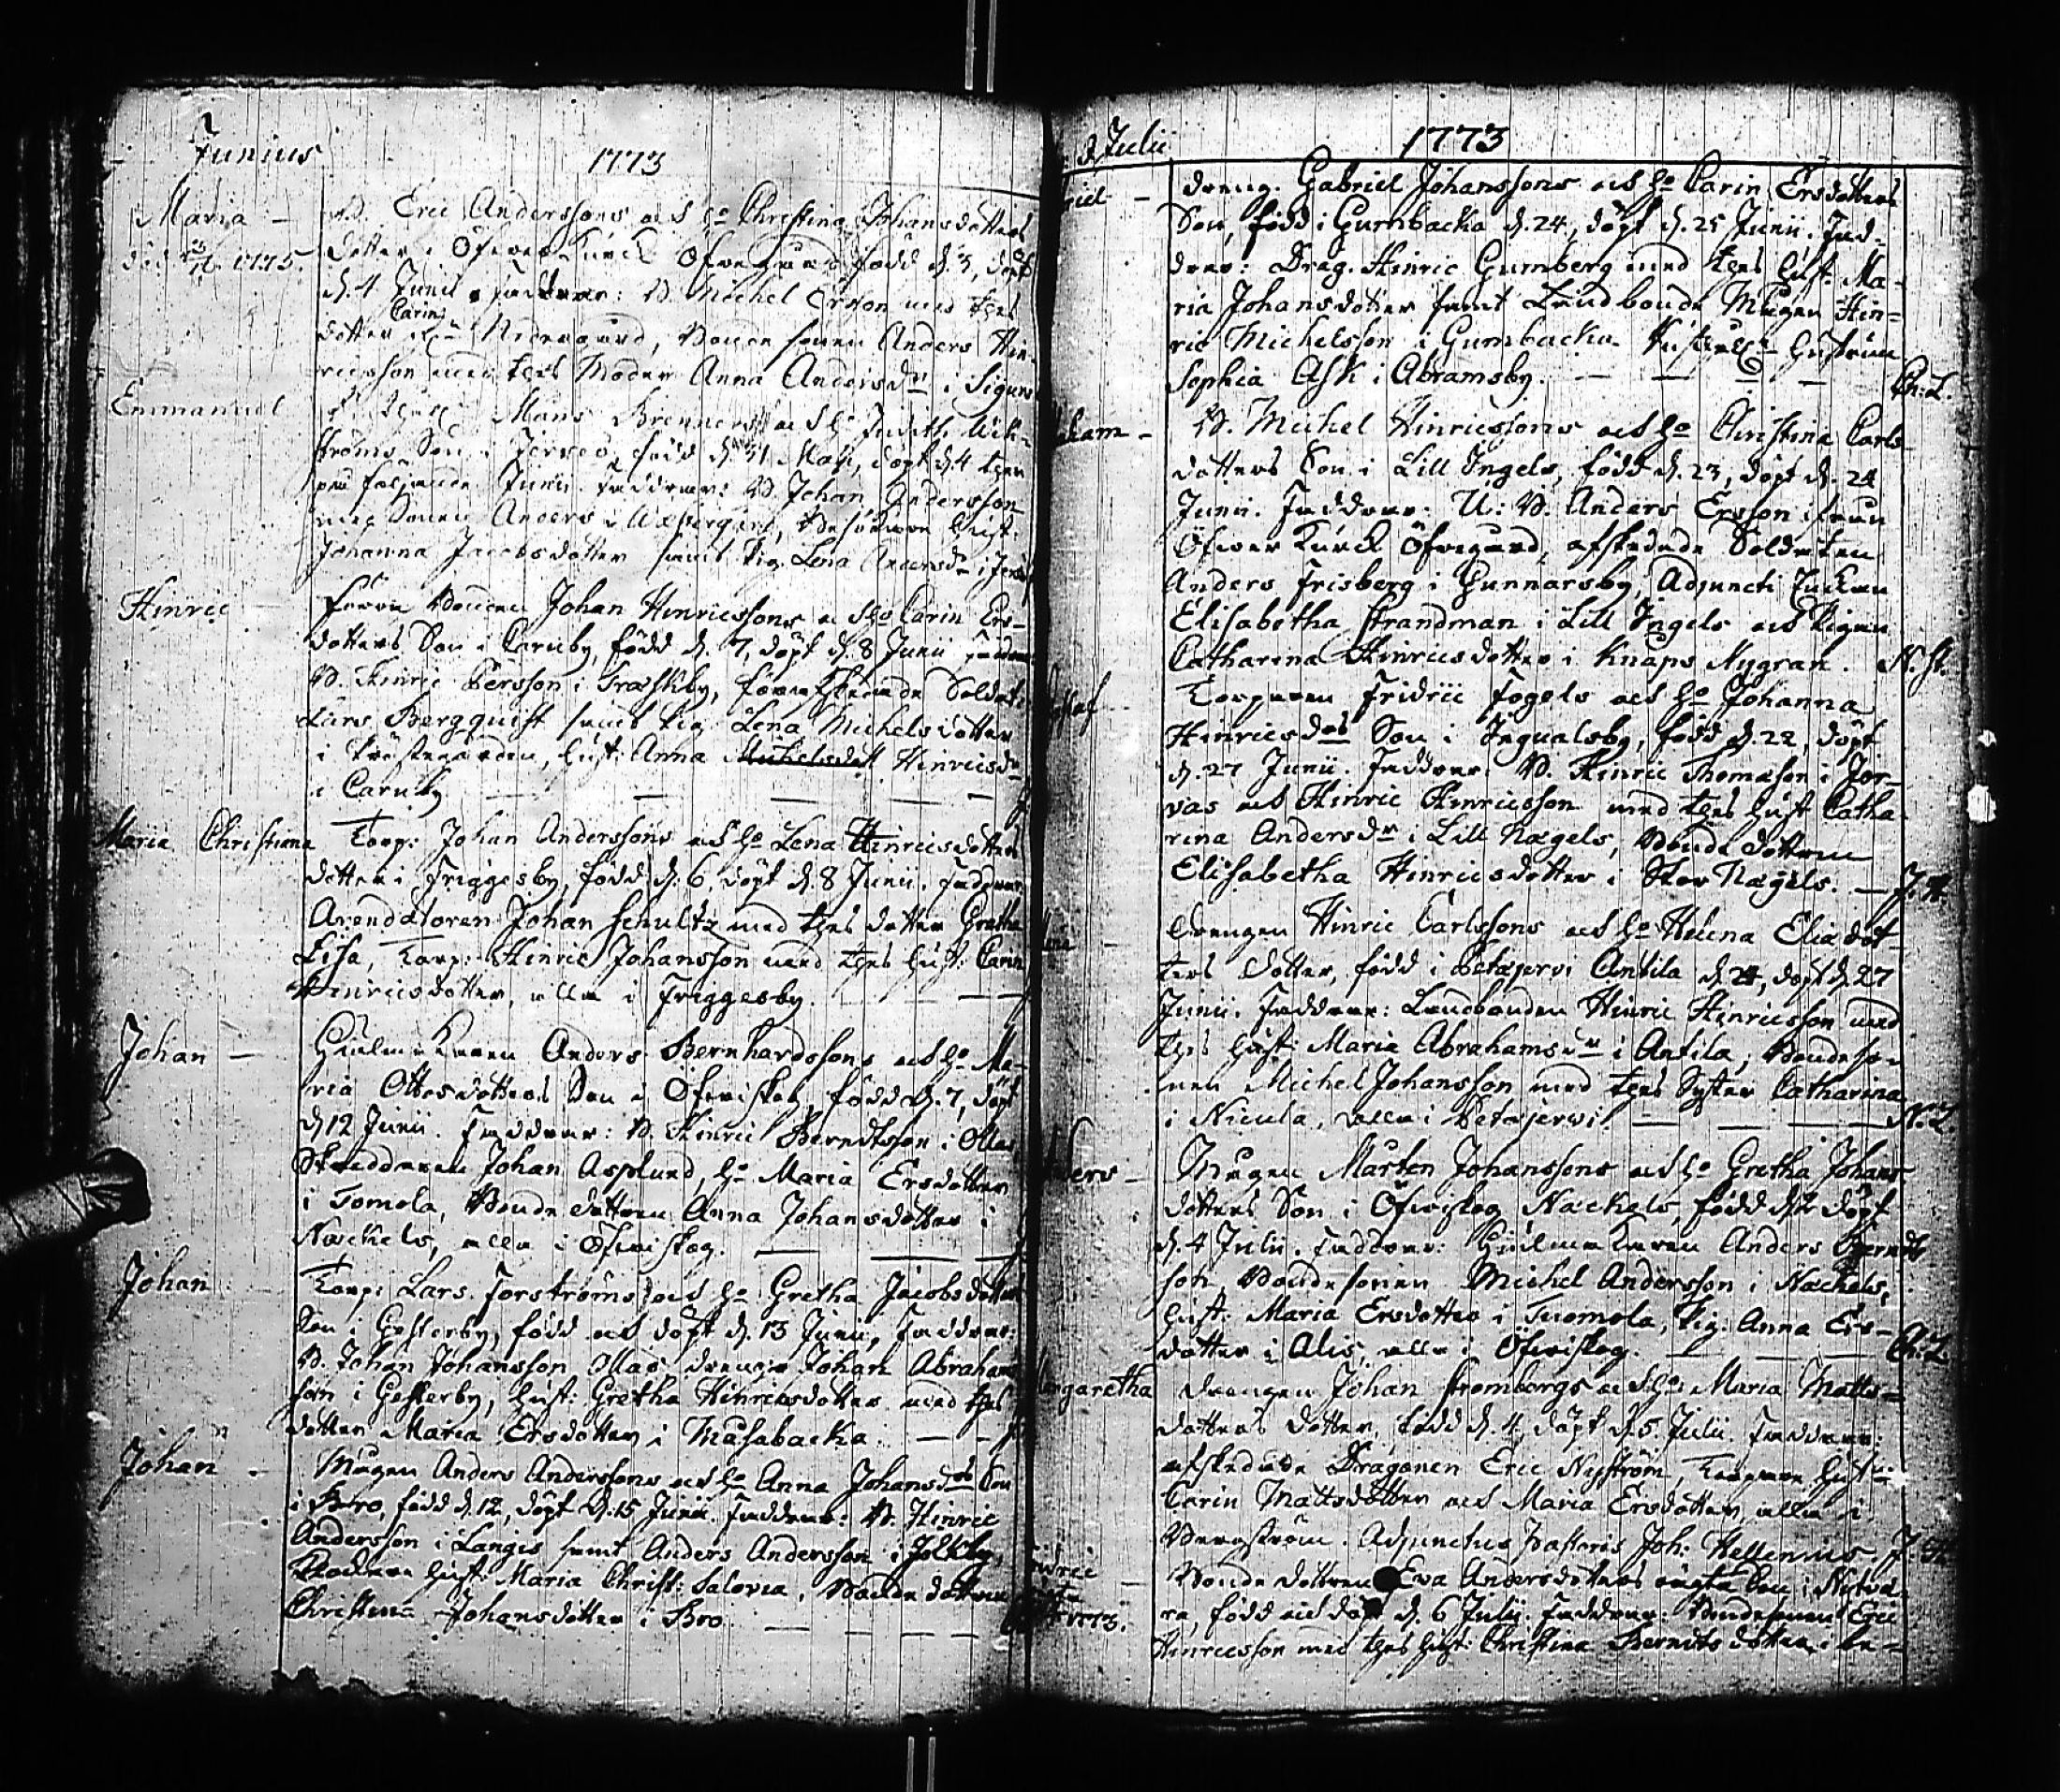 Junius 1773
Maria - B. Eric Anderssons och H:o Christina Johansdotters
död 1775. dotter i Öfver Kurck Öfvergård född d. 3, döpt
d. 4 Junii. Faddrar: B. Michel Ersson med thes
Carin
dotter Nedergård, Bonde sonen Anders Hin-
ricsson med thes Moder Anna Andersd:r i Sigurs
Emmanuel Måns Brenners och H:o Judith Wik-
ströms Son i Jerfsö, född d. 31 Maji, döpt d. 4 ther
på följande Junii. Faddrar: B. Johan Andersson
med Sonen Anders i Hust:
Johanna Jacobsdotter samt Pig. Lena Andersd:r i
Hinric - Förra Bonden Johan Hinricssons och H:o Carin Ers-
dotters Son i Caruby, född d. 7, döpt d. 8 Junii Faddrar
B. Hinric Persson i Græskby, förafskedade Soldat:
Lars Bergquist samt Pig. Lena Michelsdotter
i Prästegården, Hust: Anna Michelsdott Hinricsd:r
i Caruby
Maria Christina Torp: Johan Anderssons och H:o Lena Hinricsdotters
dotter i Friggesby, född d. 6, döpt d. 8 Junii. Faddrar
Arendatoren Johan Schultz med thes dotter Gretha
Lisa, Torp: Hinric Johansson med thes Hust: Carin
Hinricsdotter, alla i Friggesby.
Johan - Anders Bernhardssons och H:o Ma-
ria Ottosdotters Son i Öfwiskog född d. 7, döpt
d. 12 Junii. Faddrar: B. Hinric Berndtsson i Ollas
Skreddaren Johan Asplund, H:o Maria Ersdotter
i Tomola, Bonde dottren Anna Johansdotter i
Nackels, alla i Öfwiskog.
Johan - Torp: Lars Forströms och H:o Gretha Jacobsdotters
Son i Gesterby, född och döpt d. 13 Junii, Faddrar:
B. Johan Johansson Ollas drengen Johan Abrahams
son i Gesterby, Hust: Gretha Hinricsdotter med thes
dotter Maria Ersdotter i Masabacka.
Johan - Mågen Anders Anderssons och H:o Anna Johansd:rs Son
i Bro, född d. 12, döpt d. 15 Junii. Faddrar: B. Hinric
Andersson i Långis samt Anders Andersson i Folkby,
Hust: Maria Christ: Salovia, Bonde dottren
Christina Johansdotter i Bro

d. Julii 1773
riel - Dreng. Gabriel Johanssons och H:o Carin Ersdotters
Son, född i Gumbacka d. 24, döpt d. 25 Junii. Fad-
drar: Drag. Hinric Gumberg med thes Hust. Ma-
ria Johansdotter samt Landbonde Mågen Hin-
ric Michelsson i Gumbacka. Hustrun
Sophia Ask i Abramsby. Ch: L.
aham - B. Michel Hinricssons och H:o Christina Carls
dotters Son i Lill Ingels, född d. 23, döpt d. 24
Junii. Faddrar: U: B. Anders Ersson från
Öfwer Kurck Öfregård, afskedade Soldaten
Anders Frisberg i Gunnarsby, Adjuncti Enkan
Elisabetha Strandman i Lill Ingels och Pigan
Catharina Hinricsdotter i Knaps Nygran. N. St.
Torparen Fridric Fogels och H:o Johanna
Hinricsd:rs Son i Ingvalsby, född d. 22, döpt
d. 27 Junii. Faddrar: B. Hinric Thomasson i Jor-
vas och Hinric Hinricsson med thes Hust Catha
rina Andersd:r i Lill Nægels, Bonde dottren
Elisabetha Hinricsdotter i Stor Nægels. J. H.
Drengen Hinric Carlssons och H:o Helena Eliædot-
ters Dotter, född i Petajervi Antila d. 24, döpt d. 27
Junii. Faddrar: Landbonden Hinric Hinricsson med
thes Hust: Maria Abrahamsd:r i Antila, Bondeso-
nen Michel Johansson med thes Syster Catharina
i Nicula, alla i Petajerwi. N. L.
ders - Mågen Mårten Johanssons och H:o Gretha Johans
dotters Son i Öfwiskog Nackels, född d. 2 döpt
d. 4 Julii. Faddrar: Anders Berndts
son, Bondesonen Michel Andersson i Nackels,
Hust: Maria Ersdotter i Tuomola, Pig: Anna Ers-
dotter i Alis, alla i Öfwiskog. Ch: L.
rgaretha Drengen Johan Strombergs och H:o Maria Matts-
dotters dotter, född d. 4, döpt d. 5. Julii. Faddrar:
afskedade Dragonen Eric Nyström, Torpare Hust:n
Carin Mattsdotter och Maria Ersdotter, alla i
Bergström. Adjunctus Pastoris Joh. Hellenius. J. H.
nric - Bonde dottren Eva Andersdotters oägta Son i
1773. född och döpt d. 6 Julii. Faddrar: Bondesonen Eric
Hinricsson med thes Hust: Christina Berndts dotter i